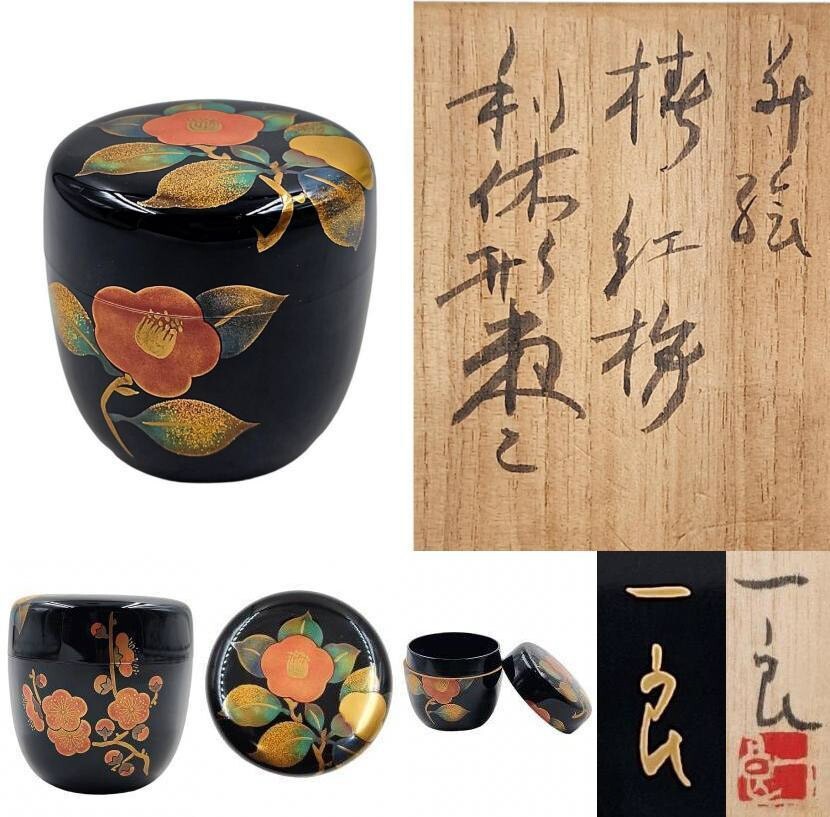 蒔絵
椿 紅梅
利休形棗
一良
一良